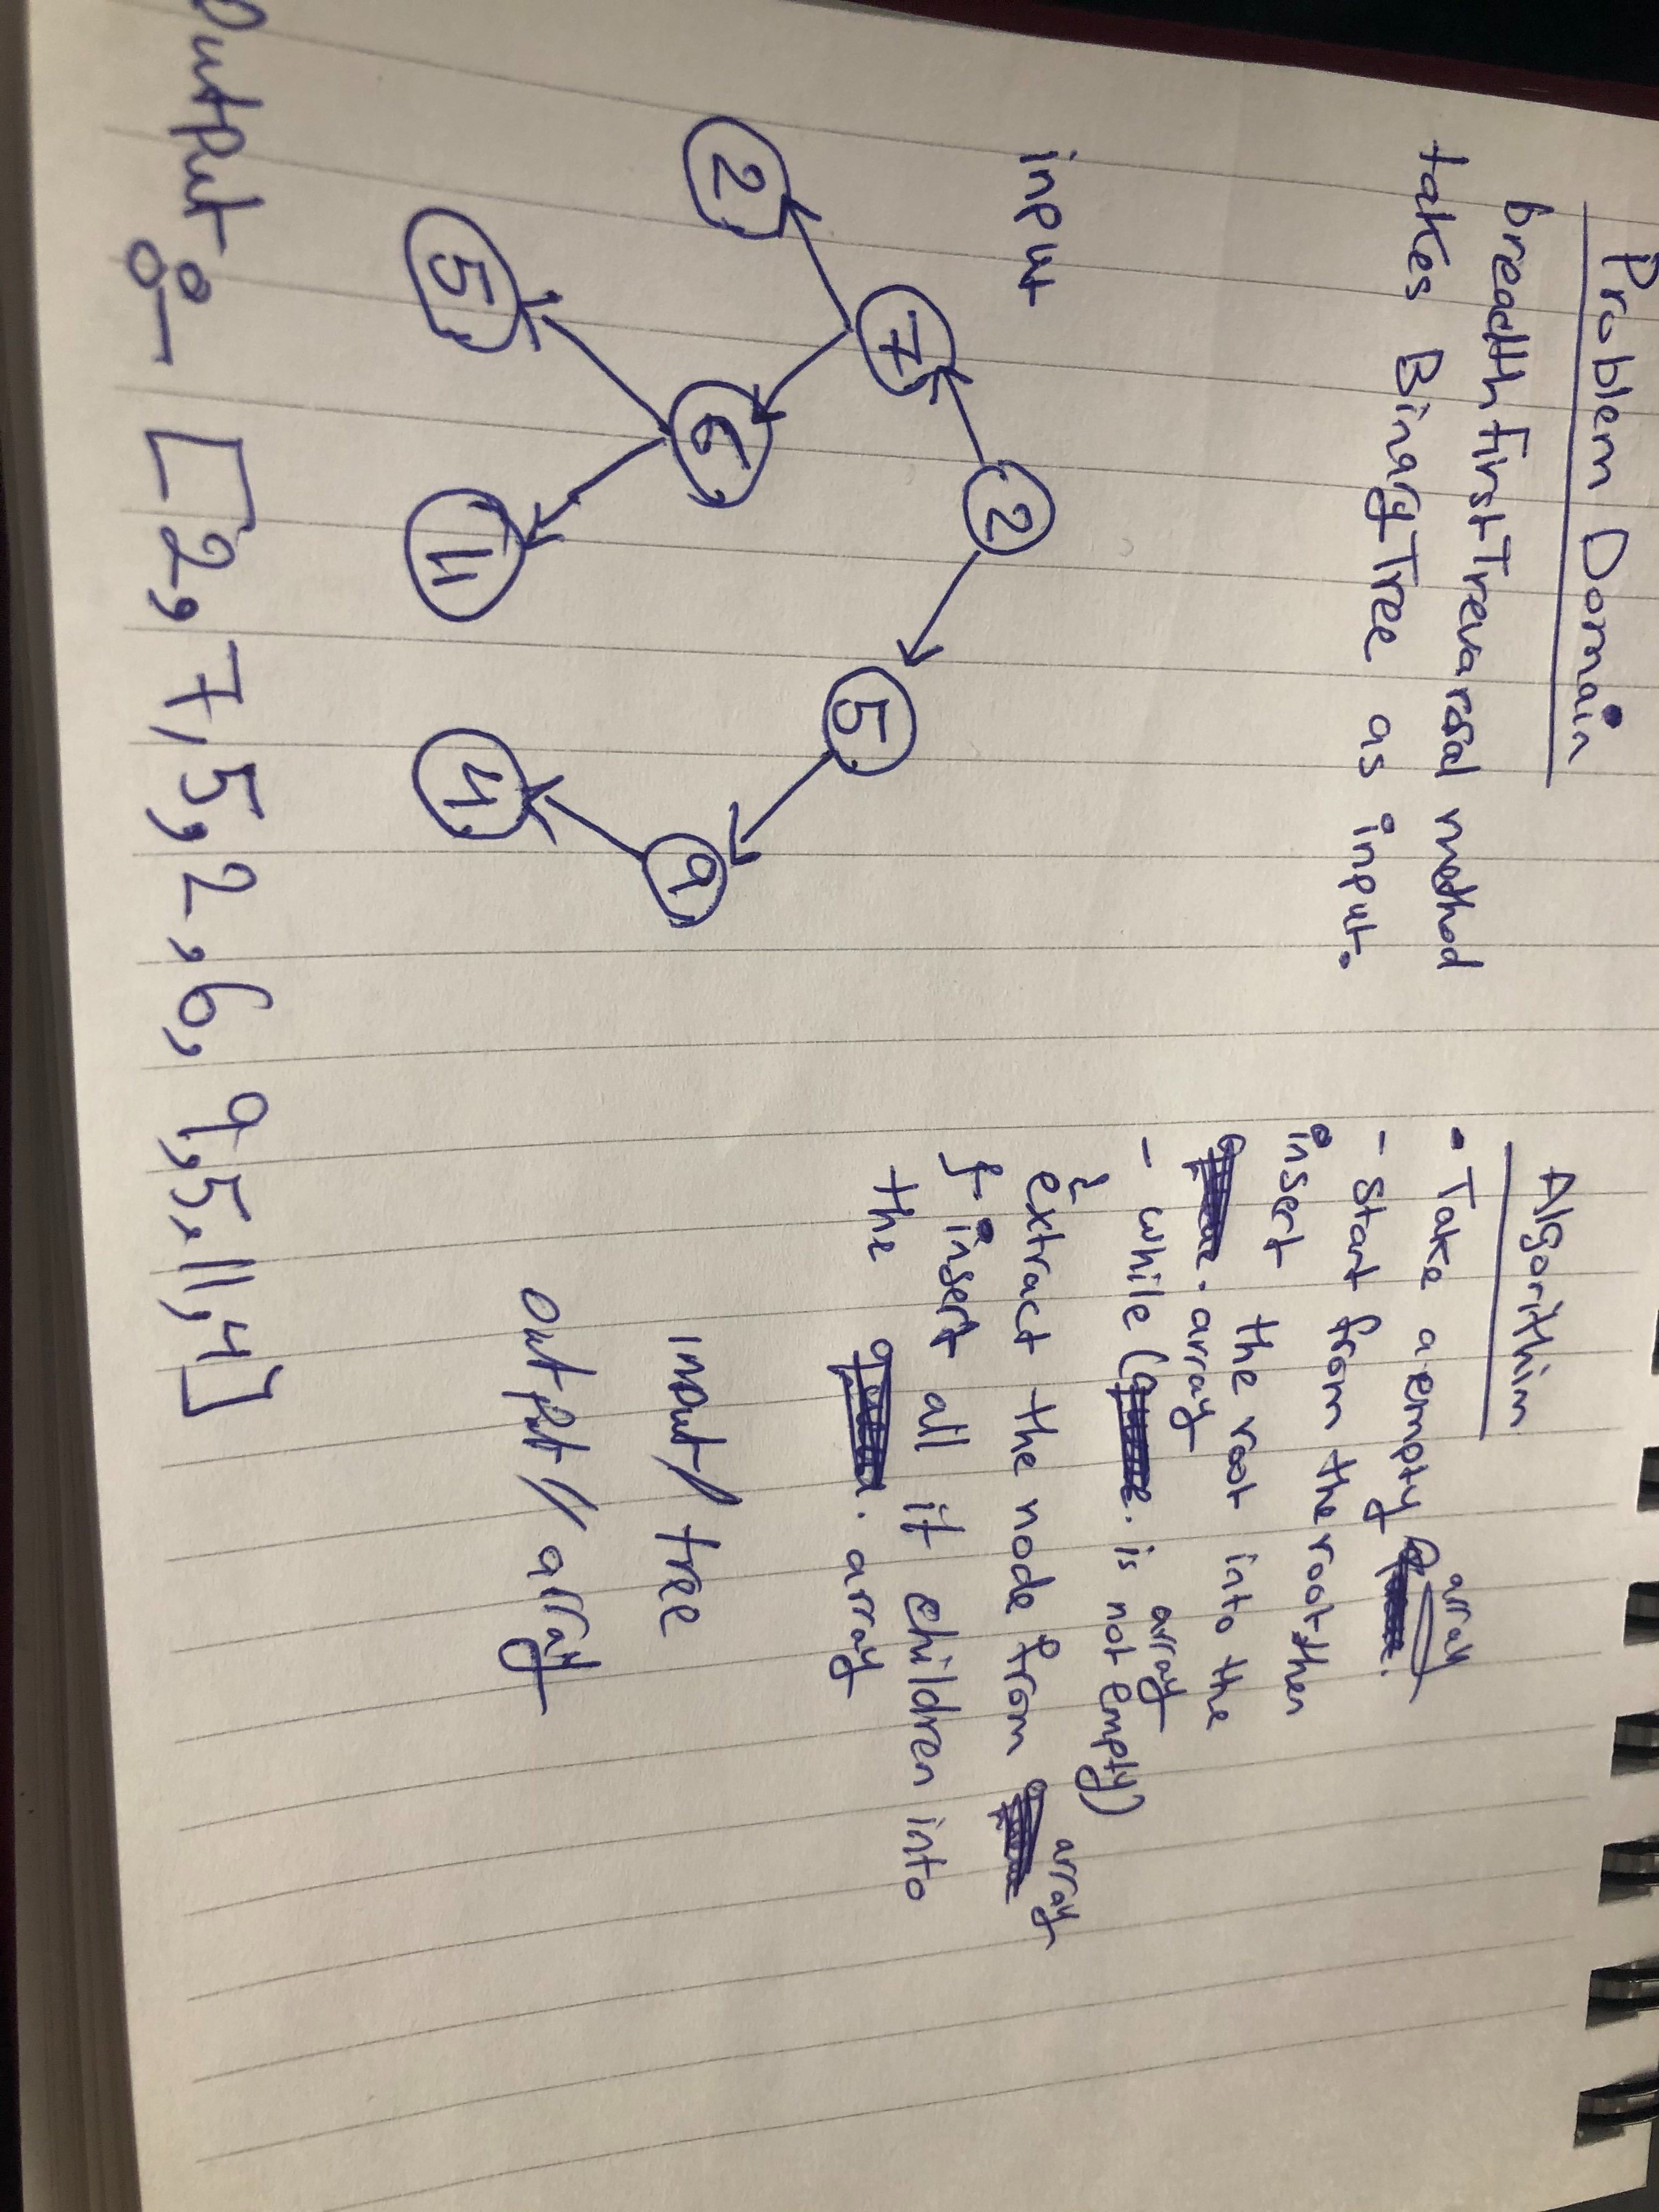 Problem Domain
breadthFirstTrevarsal method
takes BinaryTree as input.
input
2
7
5
2
6
9
5
11
4
Output :- [2,7,5,2,6,9,5,11,4]
Algorithim
• Take a empty array
- Start from the root then
insert the root into the
array
- while ( is not empty) array
extract the node from array
insert all it children into
the array
input / tree
output // array